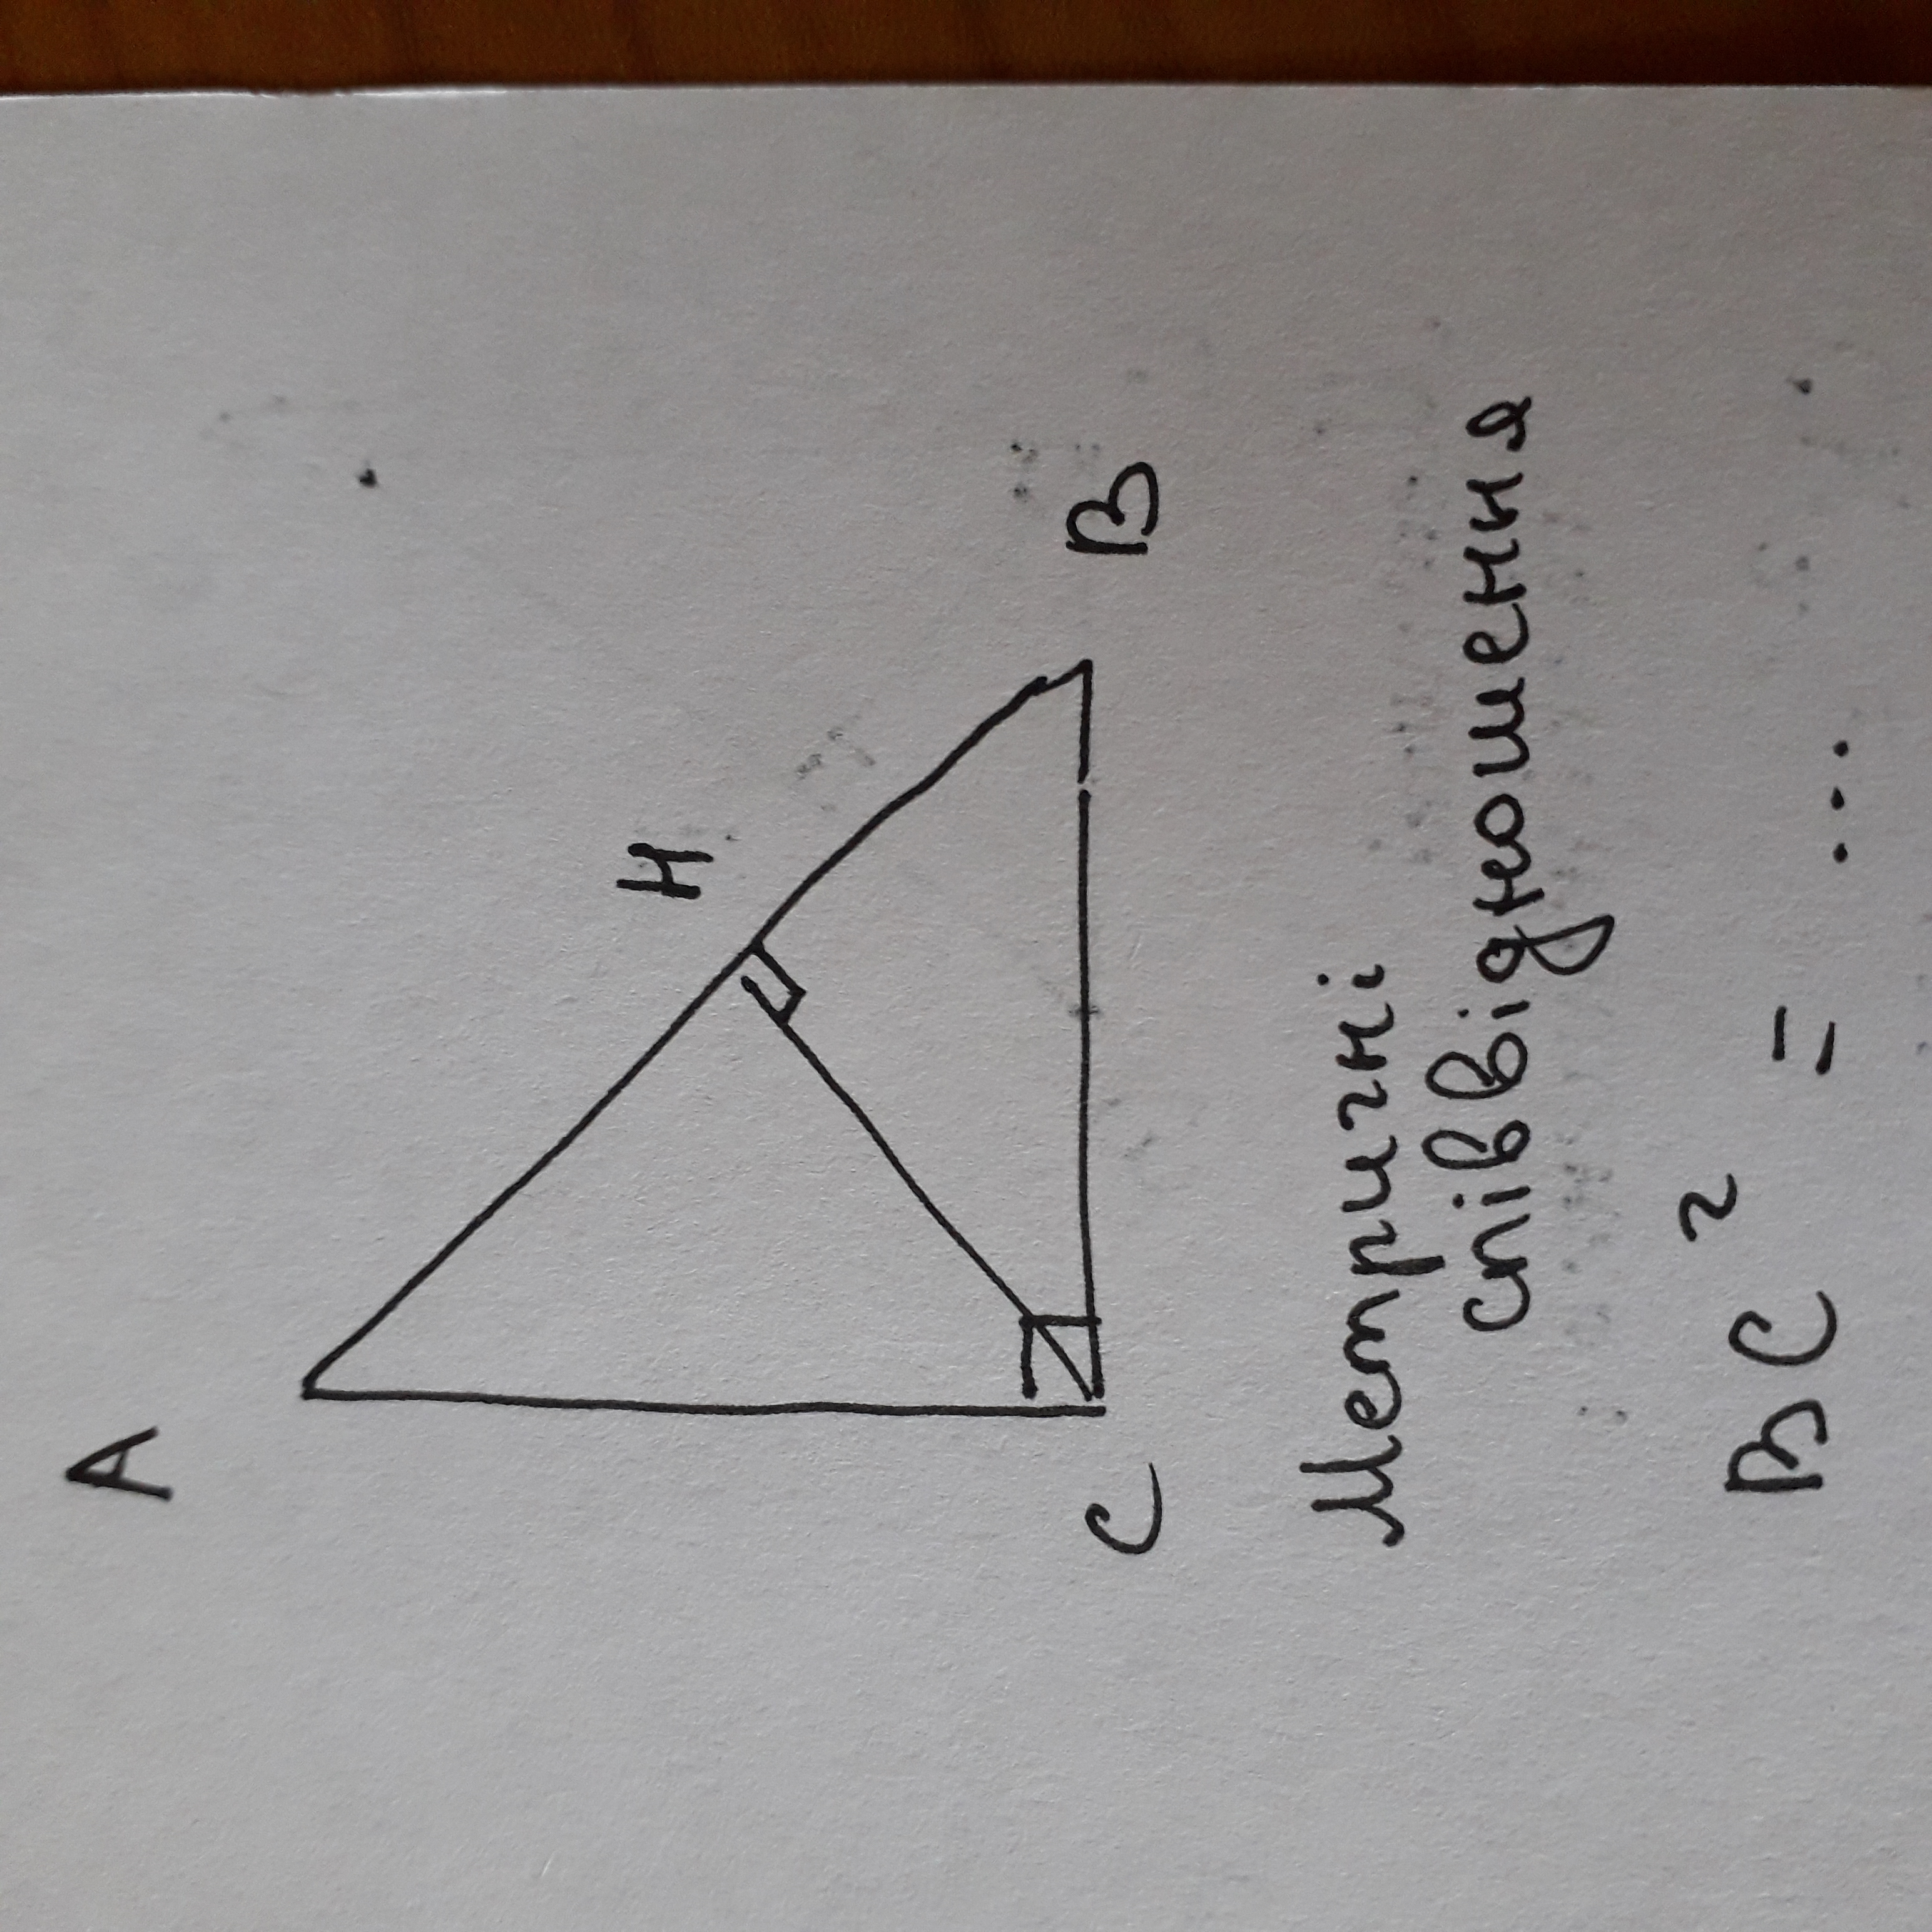 A
H
C
B
Метричні
співвідношення
BC² = ...